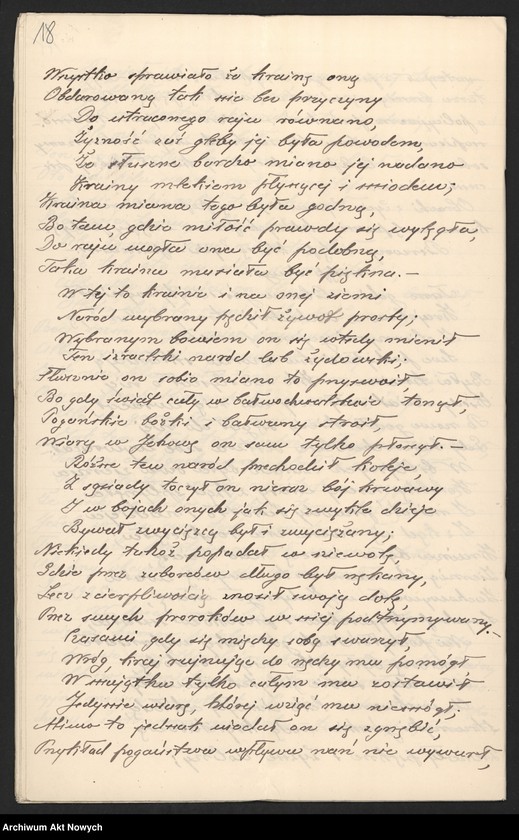 18
Wszystko sprawiało że krainą oną
Obdarowaną tak nie bez przyczyny
Do utraconego raju równano,
Żyzność zaś gleby jej była powodem,
Że słusznie bardzo miano jej nadano
Krainy mlekiem płynącej i miodem;
Kraina miana tego była godną,
Bo tam, gdzie miłość prawdy się wylęgła,
Do raju mogła ona być podobną,
Taka kraina musiała być piękna. –
W tej to krainie i na onej ziemi
Naród wybrany pędził żywot prosty;
Wybranym bowiem on się wtedy mienił
Ten izraelski naród lub żydowski;
Słusznie on sobie miano to przyswoił,
Bo gdy świat cały w bałwochwalstwie tonął,
Pogańskie bóżki i bałwany stroił,
Wiarą w Jehowę on sam tylko płonął. –
Różne ten naród przechodził koleje,
Z sąsiady toczył on nieraz bój krwawy
I w bojach onych jak się zwykle dzieje
Bywał zwycięzcą był i zwyciężany;
Niekiedy także popadał w niewolę,
Gdzie przez zaborców długo był nękany,
Lecz z cierpliwością znosił swoją dolę,
Przez swych proroków w niej podtrzymywany. –
Czasami gdy się między sobą swarzył,
Wróg, kraj rujnując do nędzy mu pomógł
W majątku tylko całym mu zostawił
Jedynie wiarę, której wziąć mu nie mógł;
Mimo to jednak nie dał on się zgnębić,
Przykład pogaństwa wpływu nań nie wywarł,
Archiwum Akt Nowych